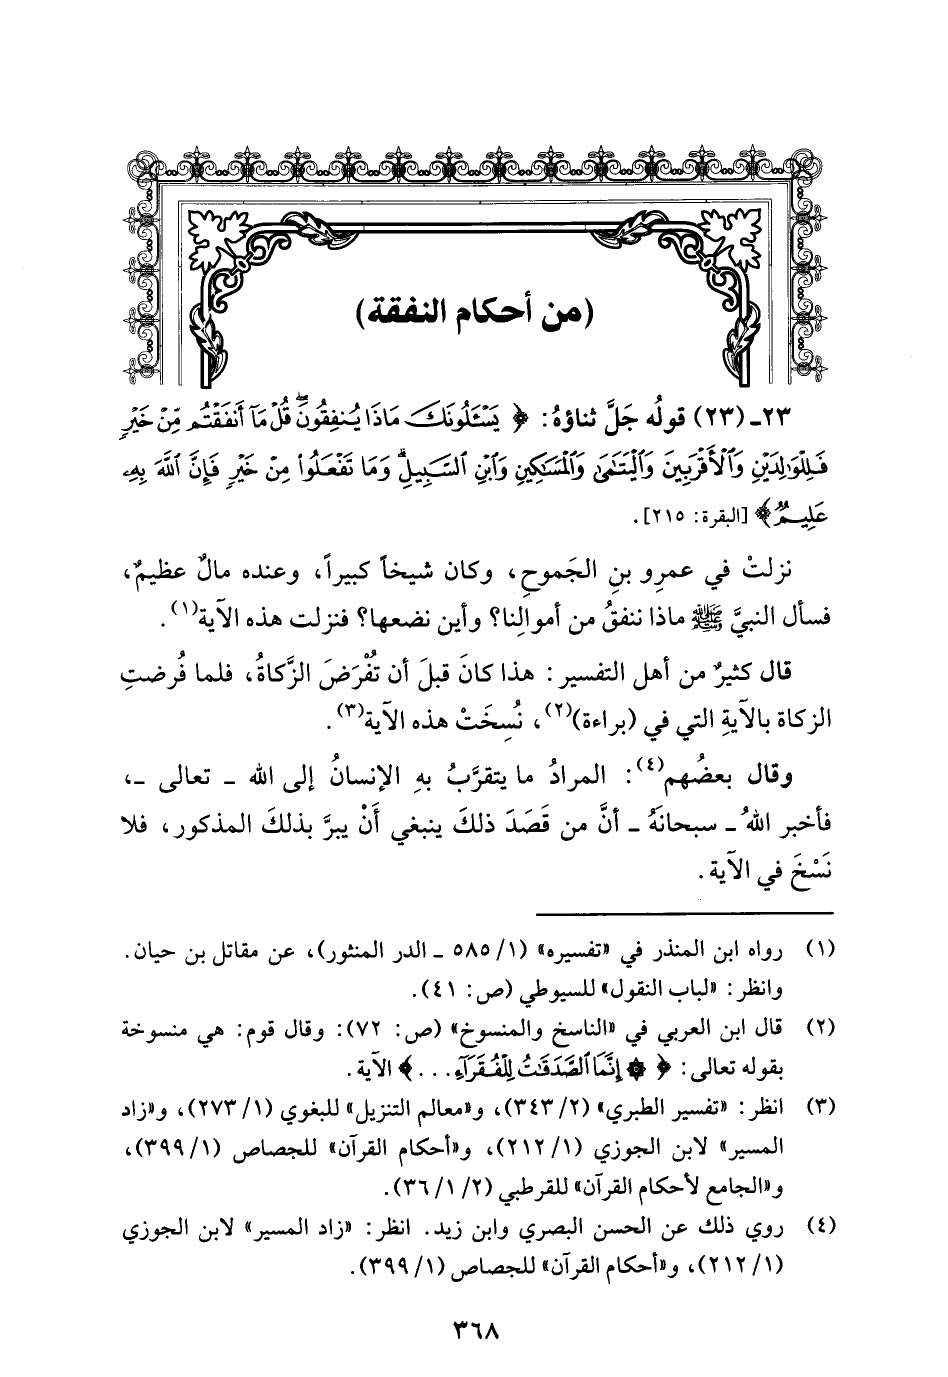 (من أحكام النفقة)
٢٣ـ (٢٣) قولُه جَلَّ ثناؤهُ: ﴿يَسْـَٔلُونَكَ مَاذَا يُنفِقُونَ ۖ قُلْ مَآ أَنفَقْتُم مِّنْ خَيْرٍ
فَلِلْوَٰلِدَيْنِ وَٱلْأَقْرَبِينَ وَٱلْيَتَـٰمَىٰ وَٱلْمَسَـٰكِينِ وَٱبْنِ ٱلسَّبِيلِ ۗ وَمَا تَفْعَلُوا۟ مِنْ خَيْرٍ فَإِنَّ ٱللَّهَ بِهِۦ
عَلِيمٌ﴾ [البقرة: ٢١٥].
نزلتْ في عمرِو بنِ الجَموحِ، وكان شيخاً كبيراً، وعنده مالٌ عظيمٌ،
فسأل النبيَّ ﷺ ماذا ننفقُ من أموالِنا؟ وأين نضعها؟ فنزلت هذه الآية(١).
قال كثيرٌ من أهل التفسير: هذا كانَ قبلَ أن تُفْرَضَ الزَّكاةُ، فلما فُرضتِ
الزكاة بالآيةِ التي في (براءة)(٢)، نُسِخَتْ هذه الآية(٣).
وقال بعضُهم(٤): المرادُ ما يتقرَّبُ بهِ الإنسانُ إلى الله ـ تعالى ـ،
فأخبر اللهُ ـ سبحانَهُ ـ أنَّ من قَصَدَ ذلكَ ينبغي أَنْ يبرَّ بذلكَ المذكور، فلا
نَسْخَ في الآية.
(١) رواه ابن المنذر في «تفسيره» (١/ ٥٨٥ ـ الدر المنثور)، عن مقاتل بن حيان.
وانظر: «لباب النقول» للسيوطي (ص: ٤١).
(٢) قال ابن العربي في «الناسخ والمنسوخ» (ص: ٧٢): وقال قوم: هي منسوخة
بقوله تعالى: ﴿۞ إِنَّمَا ٱلصَّدَقَـٰتُ لِلْفُقَرَآءِ...﴾ الآية.
(٣) انظر: «تفسير الطبري» (٢/ ٣٤٣)، و«معالم التنزيل» للبغوي (١/ ٢٧٣)، و«زاد
المسير» لابن الجوزي (١/ ٢١٢)، و«أحكام القرآن» للجصاص (١/ ٣٩٩)،
و«الجامع لأحكام القرآن» للقرطبي (٢/ ١/ ٣٦).
(٤) روي ذلك عن الحسن البصري وابن زيد. انظر: «زاد المسير» لابن الجوزي
(١/ ٢١٢)، و«أحكام القرآن» للجصاص (١/ ٣٩٩).
٣٦٨